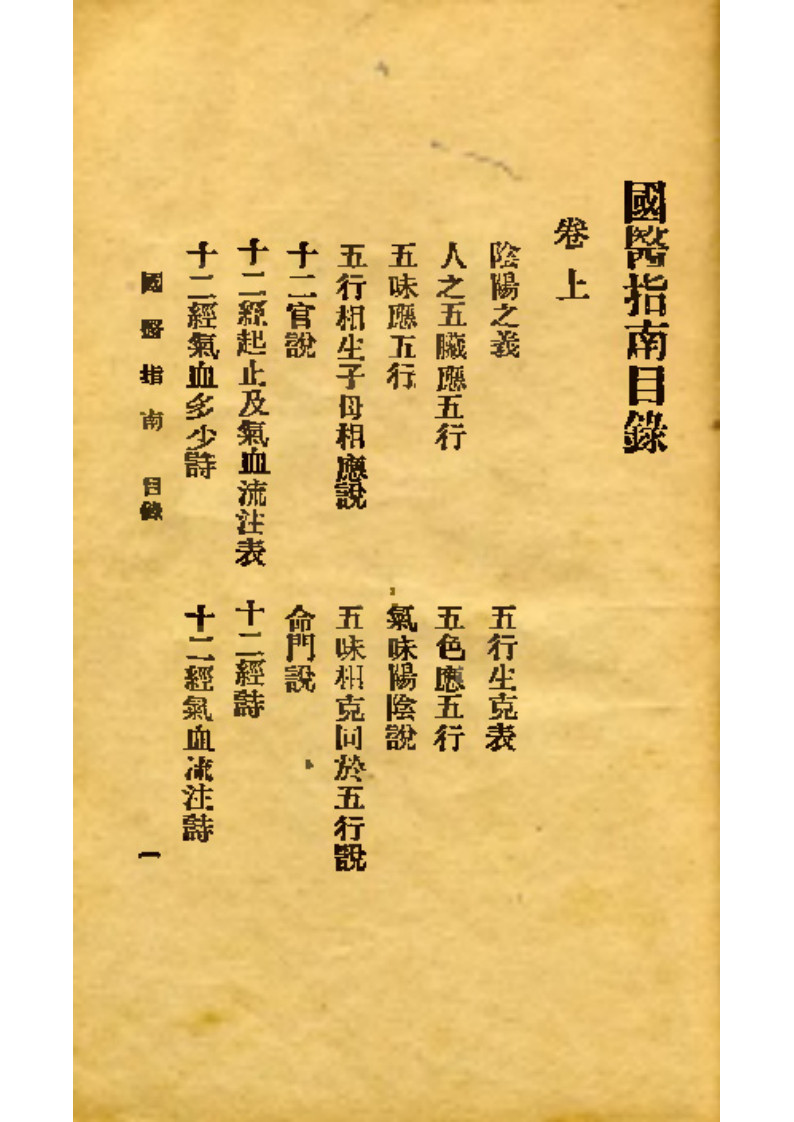 國醫指南目錄
卷上
陰陽之義
五行生克表
人之五臟應五行
五色應五行
五味應五行
氣味陽陰說
五行相生子母相應說
五味相克同於五行說
十二官說
命門說
十二經起止及氣血流注表
十二經詩
十二經氣血多少詩
十二經氣血流注詩
國醫指南 目錄
一